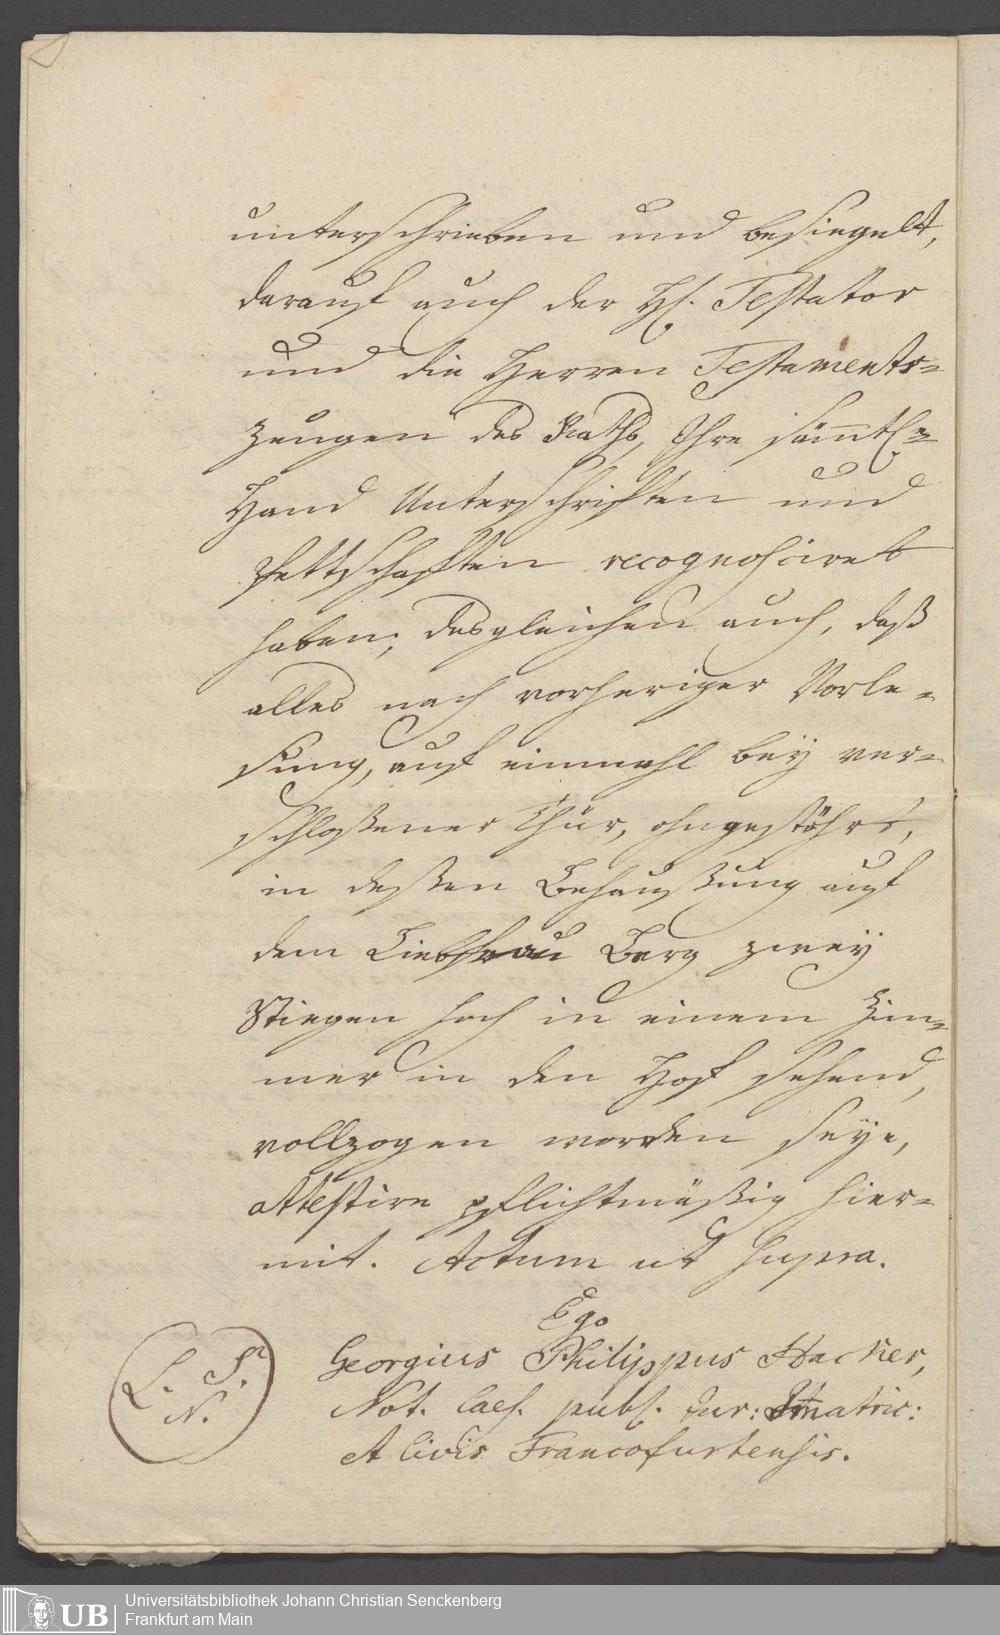 unterschrieben und besiegelt,
darauf auch der H. Testator
und die Herren Testaments-
zeugen des Raths, Ihre sämtl.
Hand Unterschriften und
Pettschafften recognosciret
haben; desgleichen auch, daß
alles nach vorheriger Vorle-
sung, auf einmahl bey ver-
schloßener Thür, ohngestöhrt,
in deßen Behaußung auf
dem Liebfrau Berg zwey
Stiegen hoch in einem Zim-
mer in den Hof sehend,
vollzogen worden seye,
attestire pflichtmäßig hier-
mit. Actum ut supra.
Ego
Georgius Philippus Hacker,
Not. Caes. publ. jur: Imatric:
et Civis Francofurtensis.
L. S.
N.
UB
Universitätsbibliothek Johann Christian Senckenberg
Frankfurt am Main